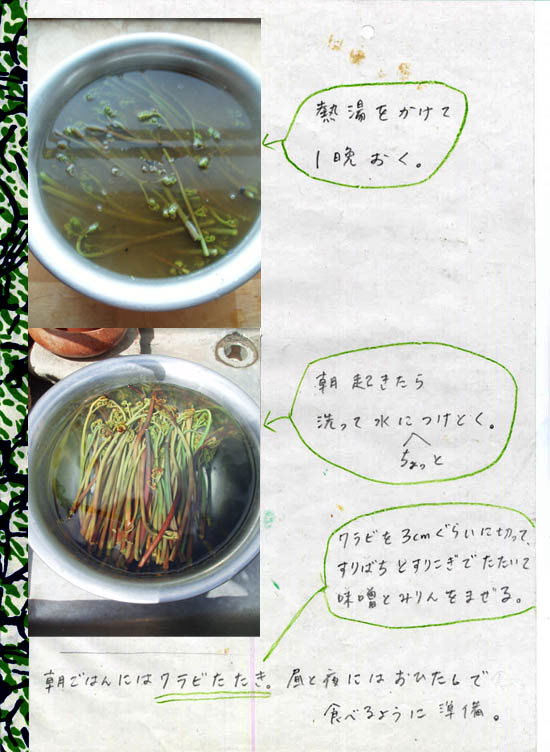 熱湯をかけて
1晩おく。
朝起きたら
洗って水につけとく。
ちょっと
ワラビを3cmぐらいに切って、
すりばちとすりこぎでたたいて
味噌とみりんをまぜる。
朝ごはんにはワラビたたき。昼と夜にはおひたしで
食べるように準備。